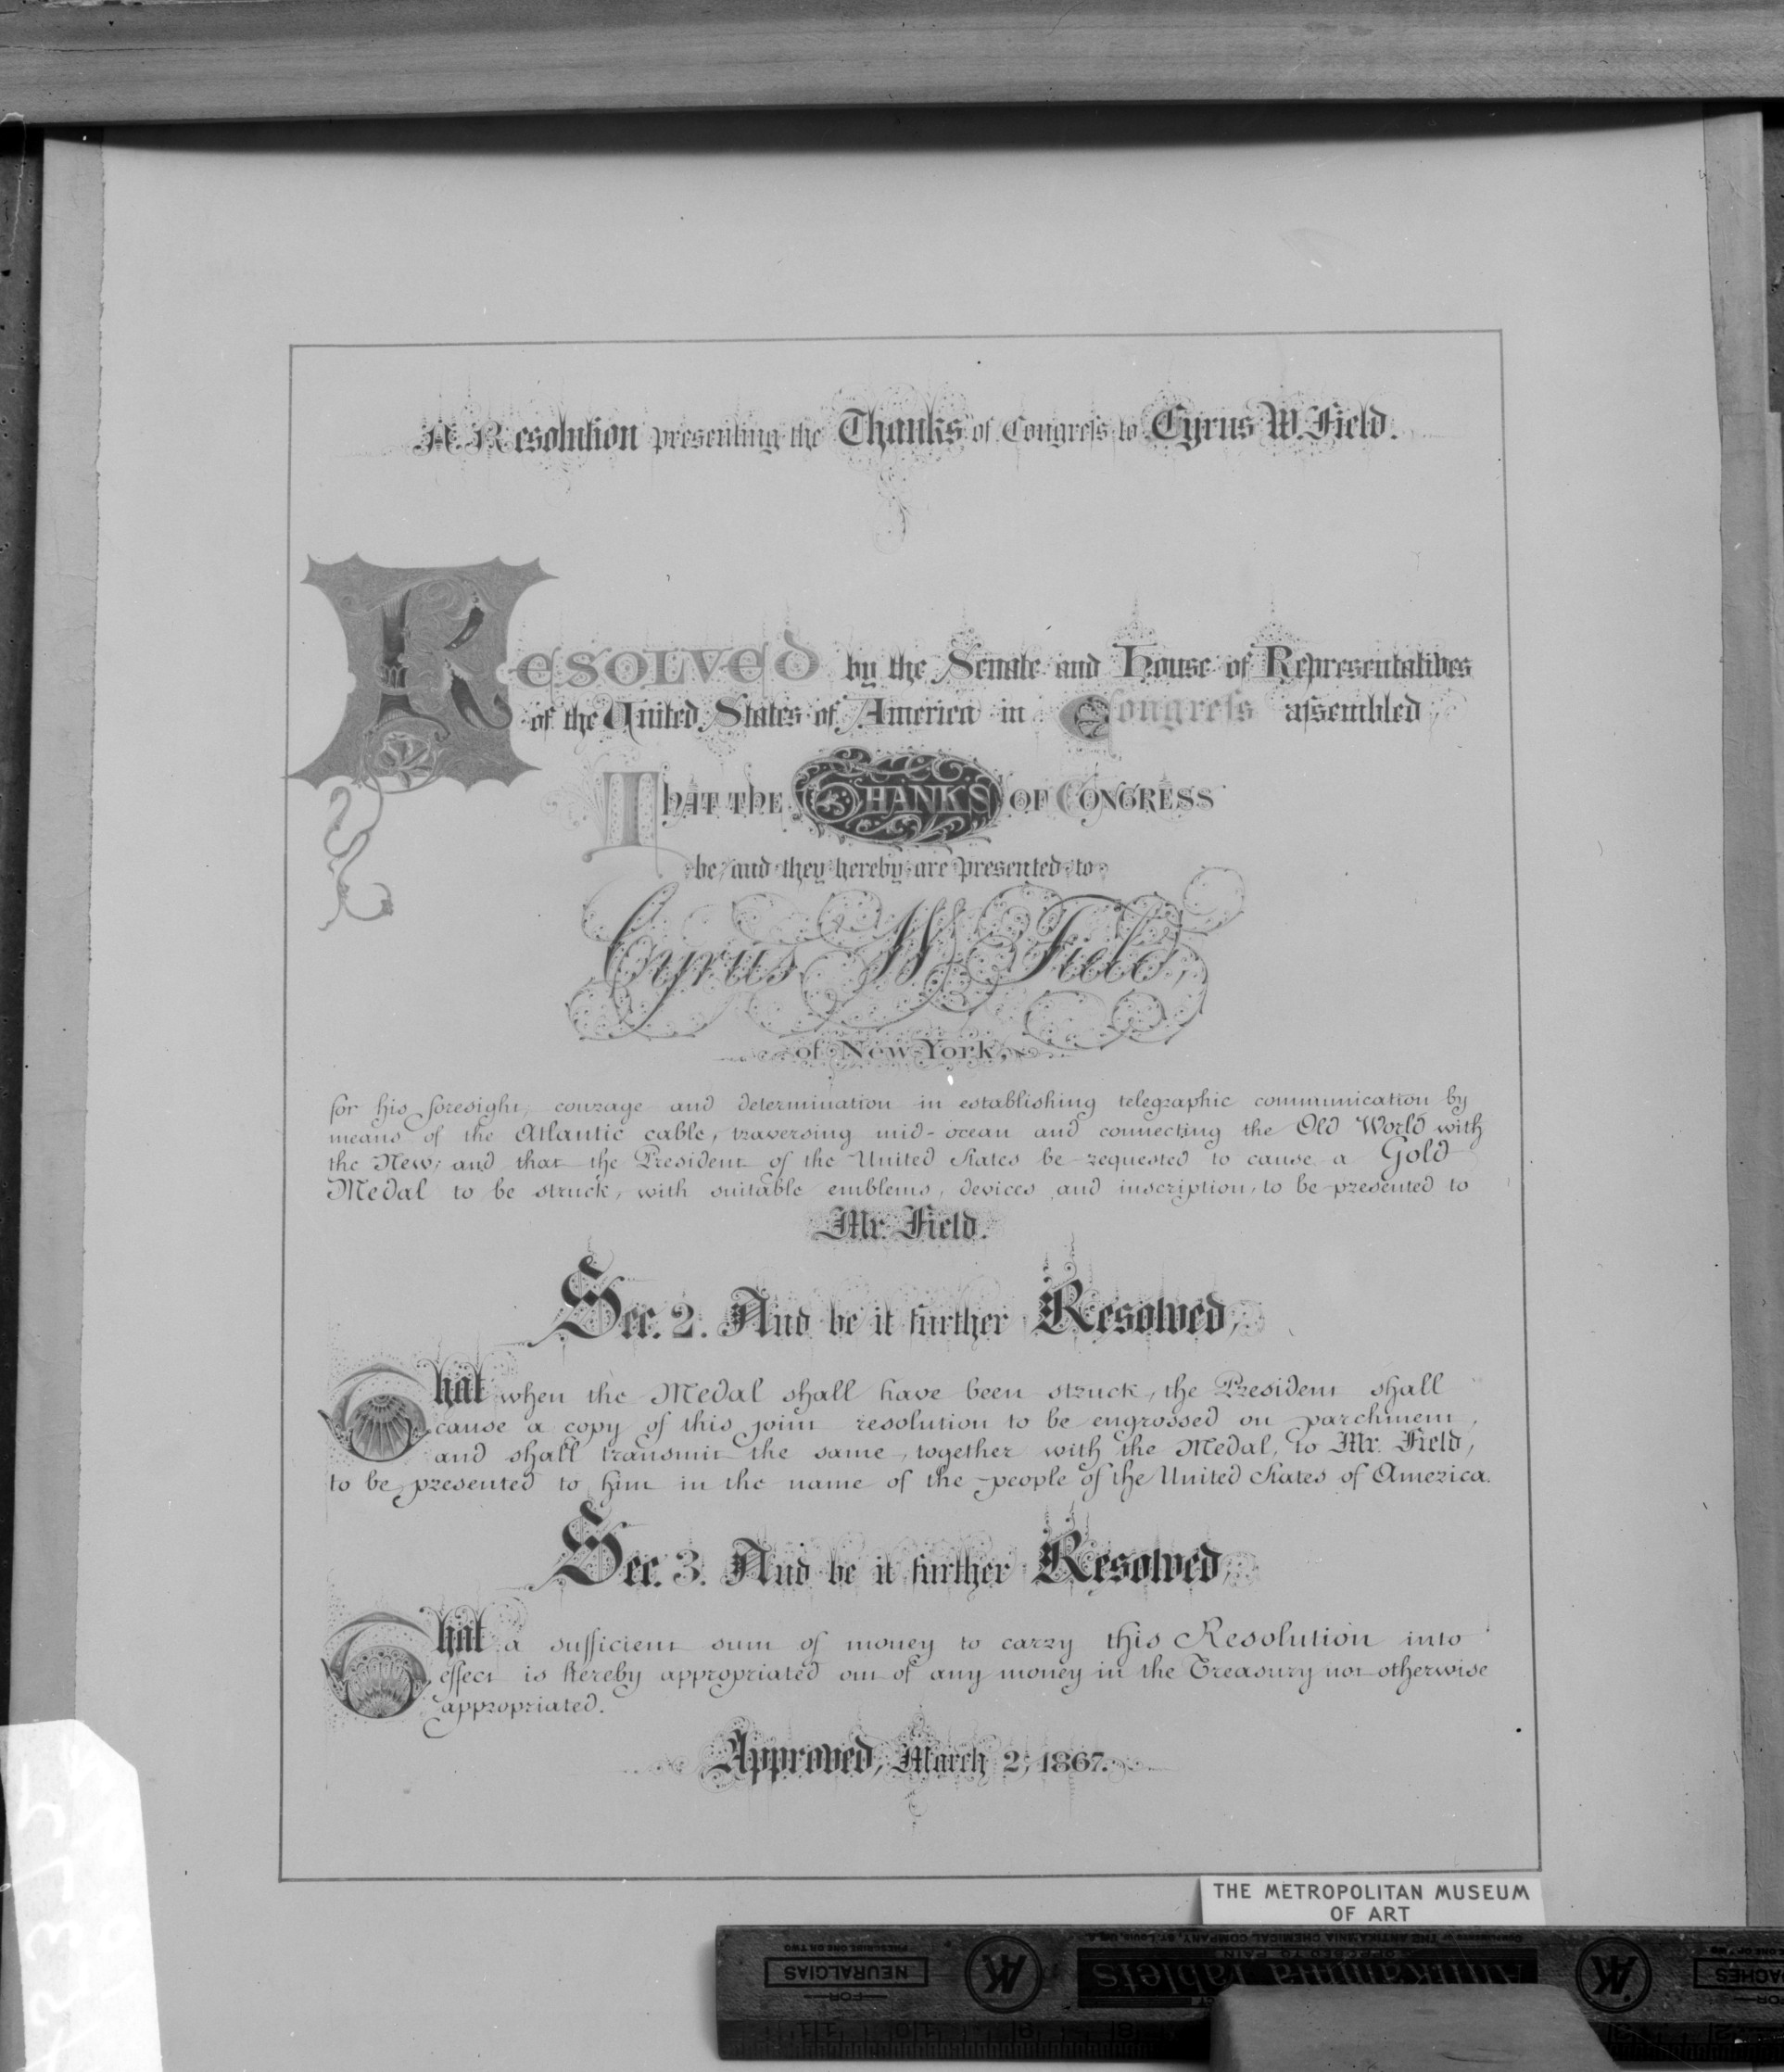 A Resolution presenting the Thanks of Congreſs to Cyrus W. Field.
Resolved by the Senate and House of Representatives
of the United States of America in Congreſs aſsembled
That the Thanks of Congress
be and they hereby are presented to
Cyrus W. Field,
of New York,
for his foresight, courage and determination in establishing telegraphic communication by
means of the Atlantic cable, traversing mid-ocean and connecting the Old World with
the New; and that the President of the United States be requested to cause a Gold
Medal to be struck, with suitable emblems, devices and inscription, to be presented to
Mr. Field.
Sec. 2. And be it further Resolved,
That when the Medal shall have been struck, the President shall
cause a copy of this joint resolution to be engrossed on parchment,
and shall transmit the same, together with the Medal, to Mr. Field,
to be presented to him in the name of the people of the United States of America.
Sec. 3. And be it further Resolved,
That a sufficient sum of money to carry this Resolution into
effect is hereby appropriated out of any money in the Treasury not otherwise
appropriated.
Approved, March 2, 1867.
THE METROPOLITAN MUSEUM
OF ART
THE ANTIKAMNIA CHEMICAL COMPANY, ST. LOUIS, U.S.A.
PRESCRIBE ONE OR TWO
OPPOSED TO PAIN
NEURALGIAS
AK
Antikamnia Tablets
AK
FOR
FOR
11 10 9 8